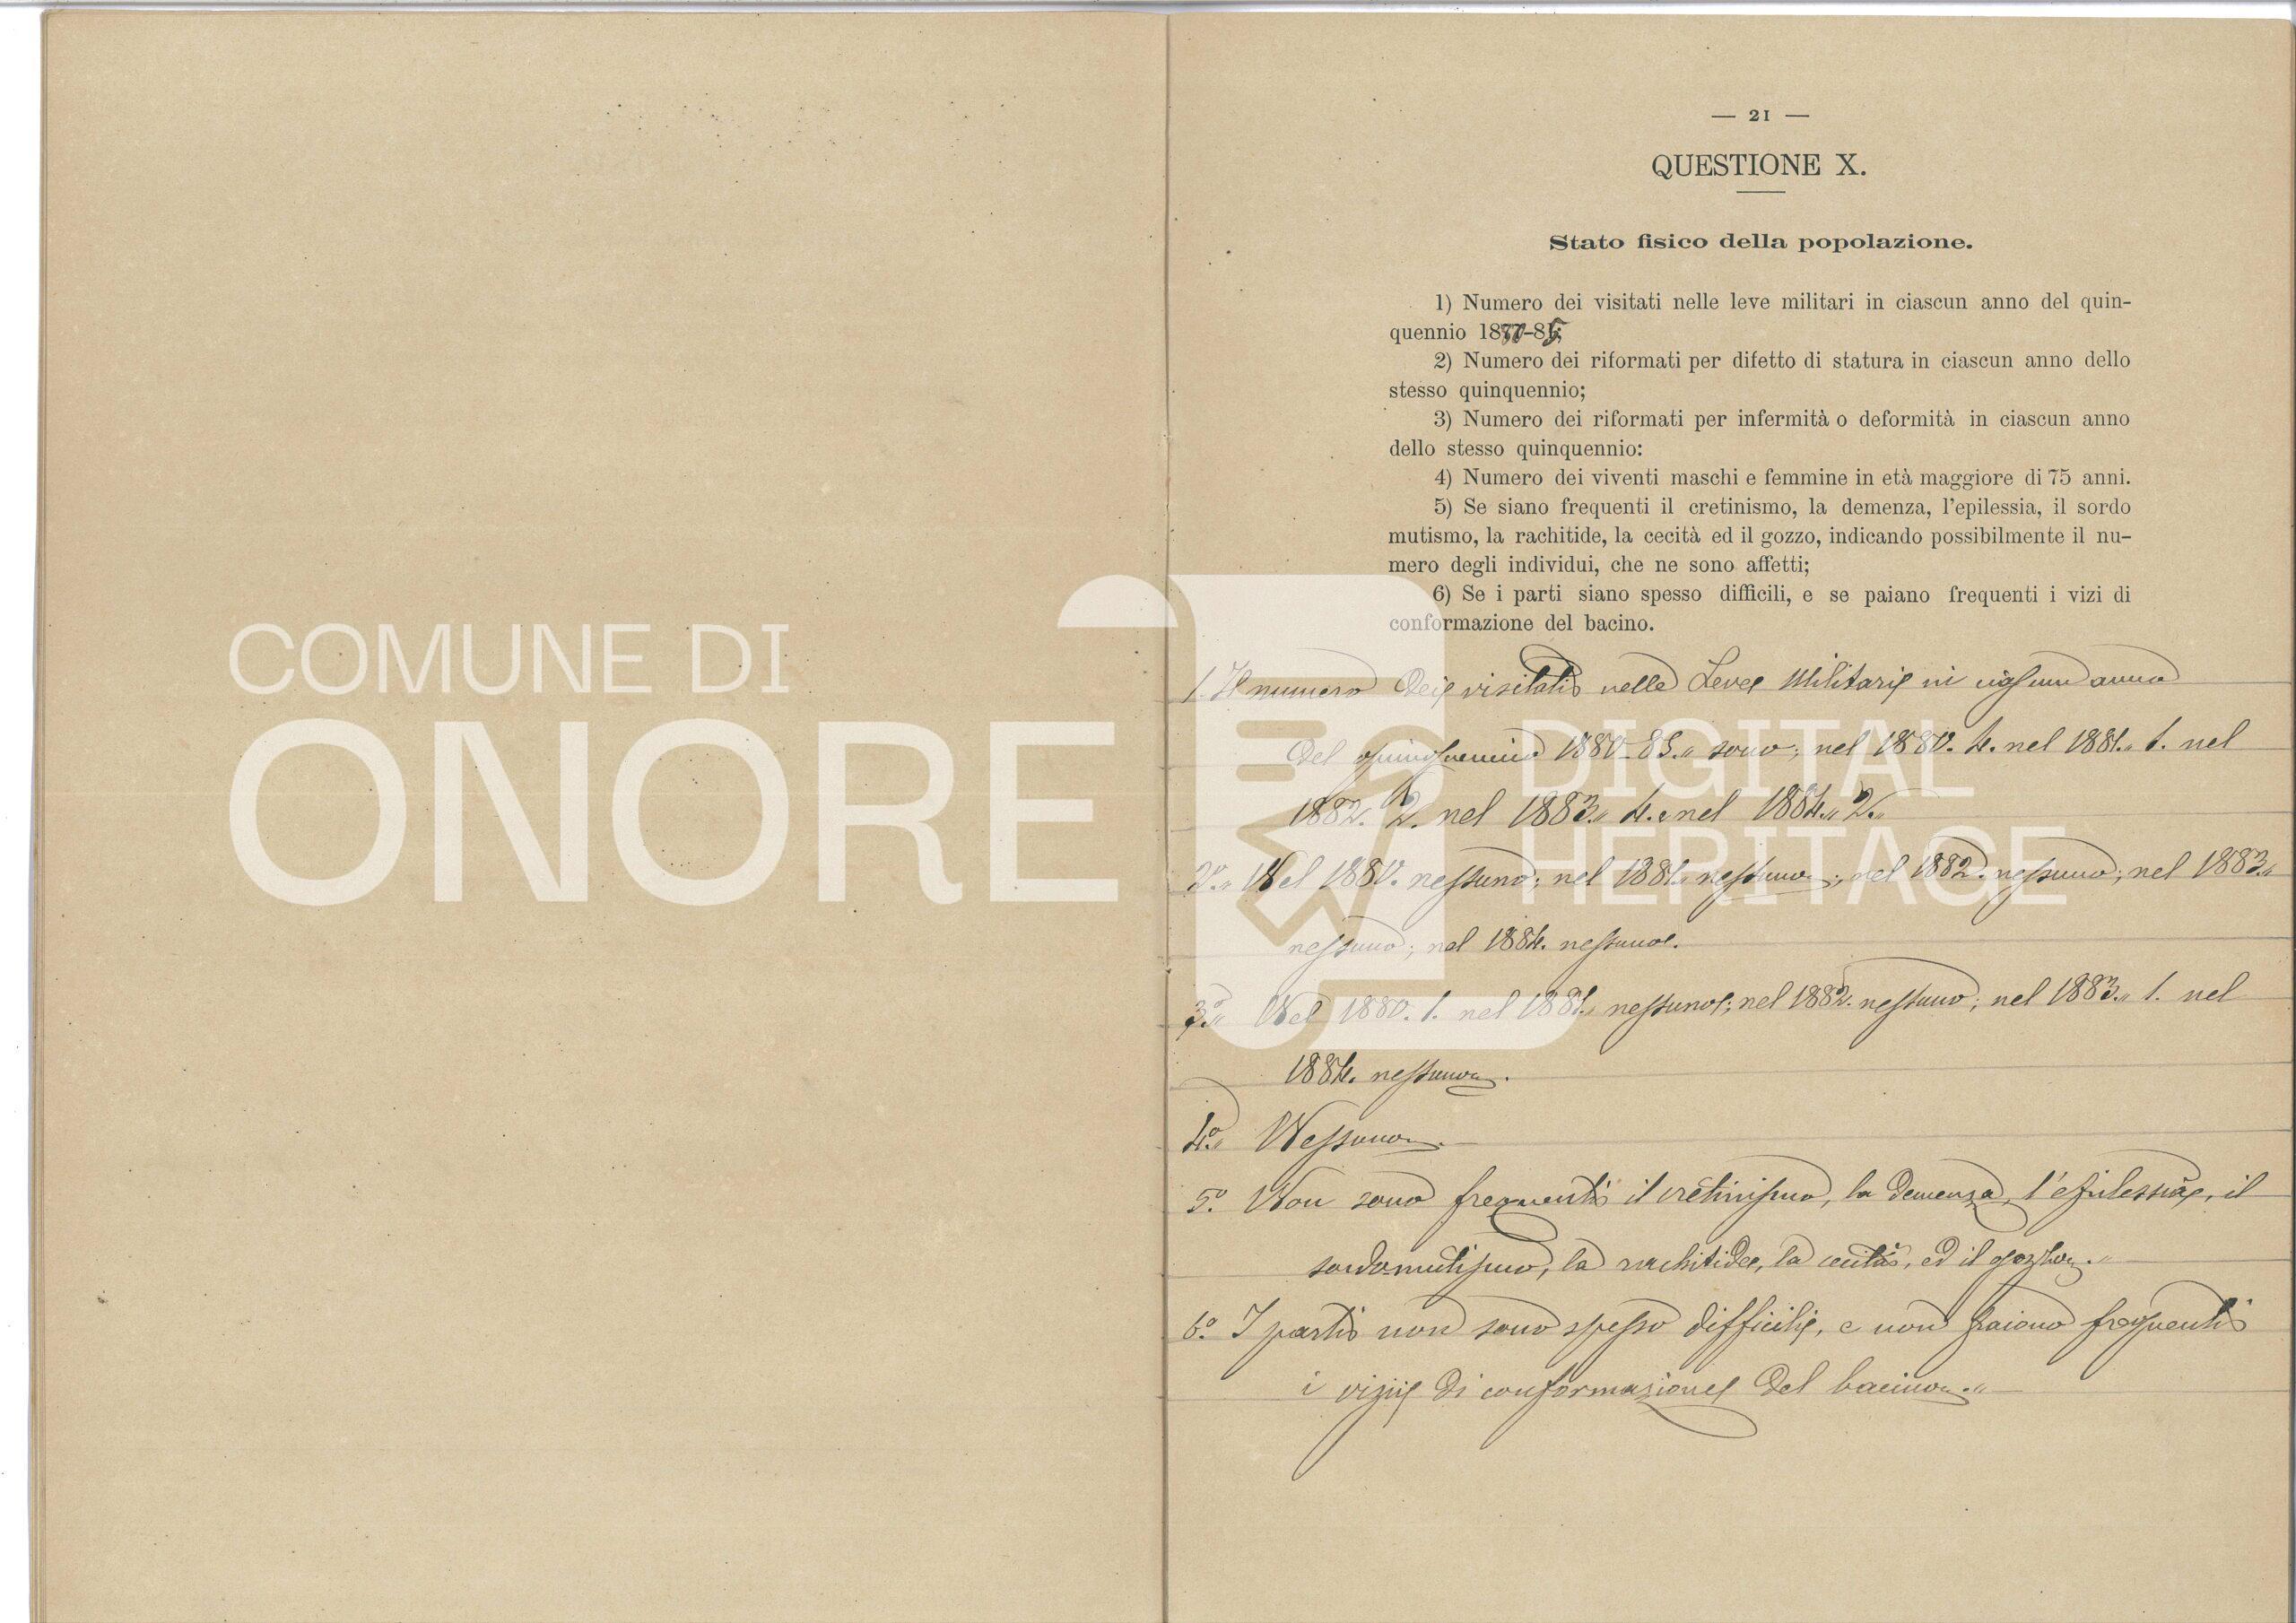 — 21 —
QUESTIONE X.
Stato fisico della popolazione.
1) Numero dei visitati nelle leve militari in ciascun anno del quin-
quennio 1880-85;
2) Numero dei riformati per difetto di statura in ciascun anno dello
stesso quinquennio;
3) Numero dei riformati per infermità o deformità in ciascun anno
dello stesso quinquennio:
4) Numero dei viventi maschi e femmine in età maggiore di 75 anni.
5) Se siano frequenti il cretinismo, la demenza, l'epilessia, il sordo
mutismo, la rachitide, la cecità ed il gozzo, indicando possibilmente il nu-
mero degli individui, che ne sono affetti;
6) Se i parti siano spesso difficili, e se paiano frequenti i vizi di
conformazione del bacino.
COMUNE DI
ONORE
DIGITAL
HERITAGE
1. Il numero dei visitati nelle Leve Militari in ciascun anno
del quinquennio 1880-85 sono; nel 1880. 4. nel 1881. 1. nel
1882. 2. nel 1883. 4. e nel 1884. 2.
2º. Nel 1880. nessuno; nel 1881. nessuno; nel 1882. nessuno; nel 1883.
nessuno; nel 1884. nessuno.
3º. Nel 1880. 1. nel 1881. nessuno; nel 1882. nessuno; nel 1883. 1. nel
1884. nessuno.
4º. Nessuno.
5º. Non sono frequenti il cretinismo, la demenza, l'epilessia, il
sordo-mutismo, la rachitide, la cecità, ed il gozzo.
6º. I parti non sono spesso difficili, e non paiono frequenti
i vizii di conformazione del bacino.